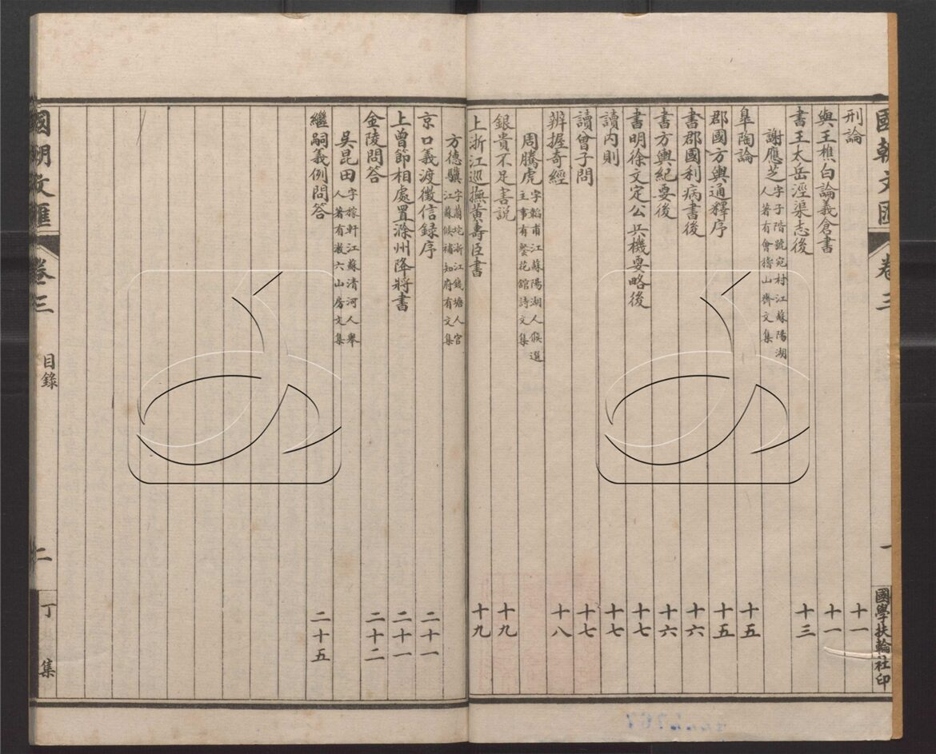 國朝文匯 卷三 一 國學扶輪社印
刑論 十一
與王樵白論義倉書 十一
書王太岳涇渠志後 十三
謝應芝 字子階號宛村江蘇陽湖人著有會稽山齋文集
皋陶論 十五
郡國方輿通釋序 十五
書郡國利病書後 十六
書方輿紀要後 十六
書明徐文定公兵機要略後 十七
讀內則 十七
讀曾子問 十七
辨握奇經 十八
周騰虎 字韜甫江蘇陽湖人候選主事有餐花館詩文集
銀貴不足害說 十九
上浙江巡撫黃壽臣書 十九
方德驥 字浙江錢塘人官江蘇候補知府有文集
京口義渡徵信錄序 二十一
上曾節相處置滁州降將書 二十一
金陵問答 二十二
吳昆田 字稼軒江蘇清河人舉人著有漱六山房文集
繼嗣義例問答 二十五
國朝文匯 卷三 目錄 二 丁集